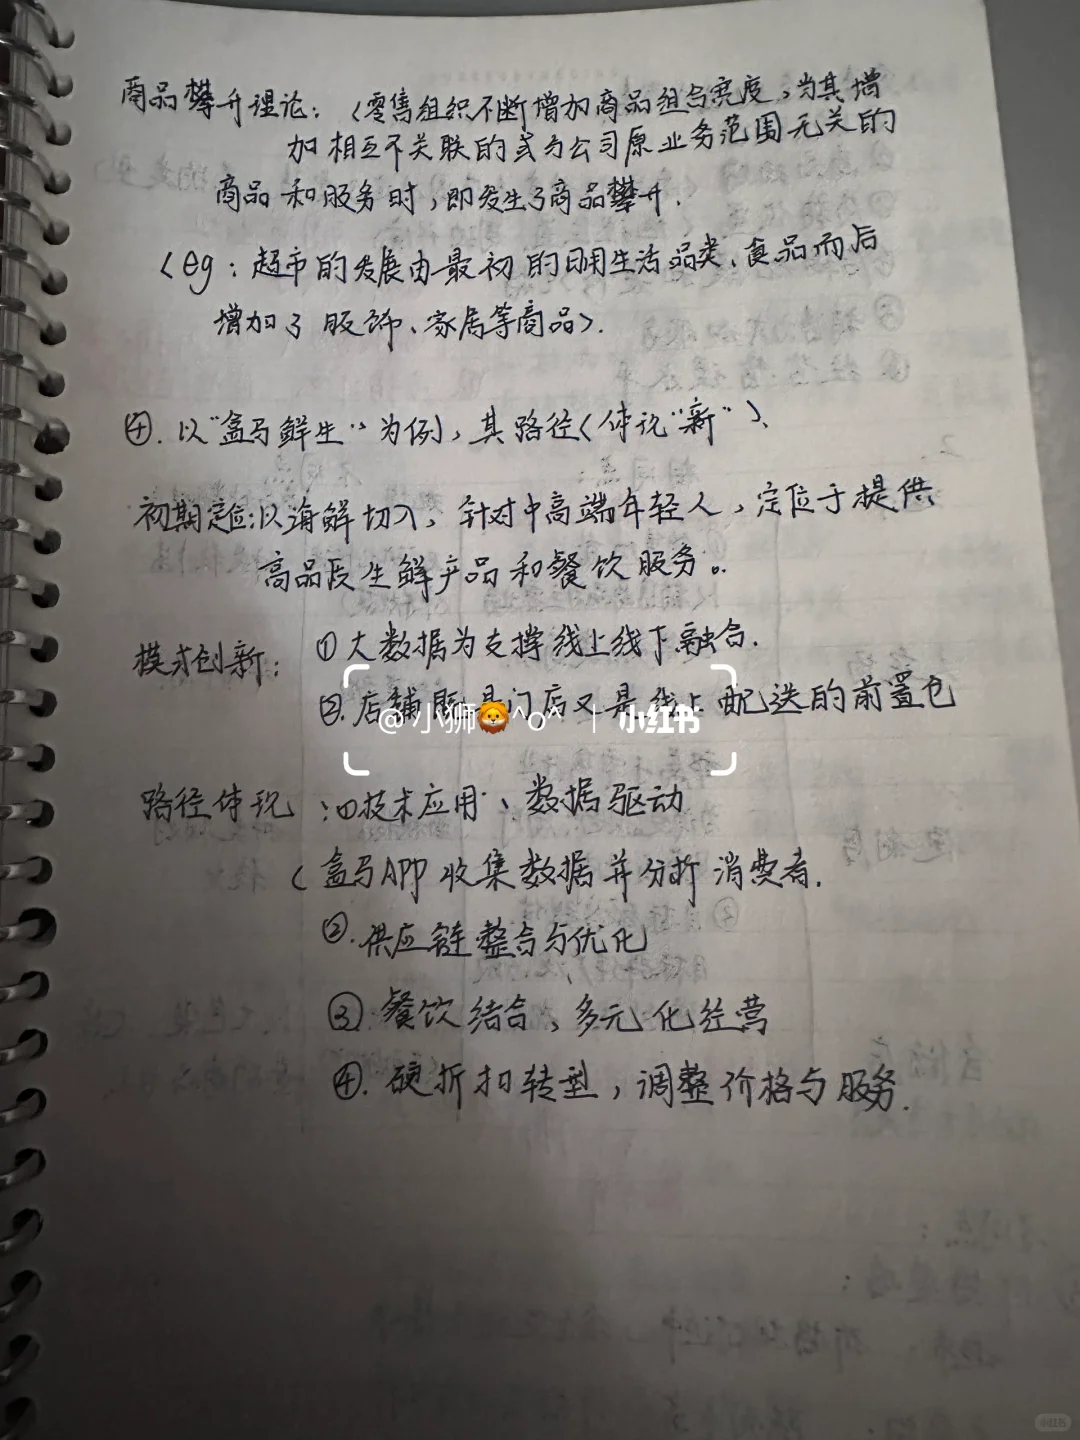 商品攀升理论：〈零售组织不断增加商品组合宽度，当其增
加相互不关联的或与公司原业务范围无关的
商品和服务时，即发生了商品攀升.
〈eg：超市的发展由最初的日用生活品类、食品而后
增加了服饰、家居等商品〉.
④. 以“盒马鲜生”为例，其路径〈体现“新”〉、
初期定位：以海鲜切入，针对中高端年轻人，定位于提供
高品质生鲜产品和餐饮服务。
模式创新：①大数据为支撑线上线下融合.
②.店铺既是门店又是线上配送的前置仓
@小狮🦁^o^ | 小红书
路径体现：①技术应用、数据驱动
（盒马APP收集数据并分析消费者.
②.供应链整合与优化
③餐饮结合，多元化经营
④.硬折扣转型，调整价格与服务.
小红书